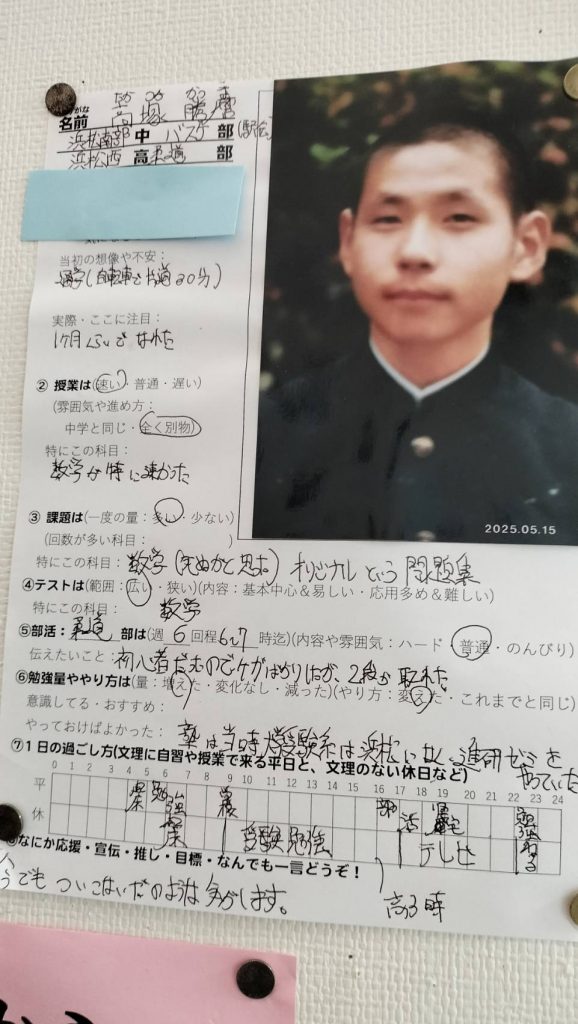 名前 高塚勝
浜松南部 中 バスケ 部(駅伝)
浜松西 高 柔道 部
当初の想像や不安:
通学(自転車で片道20分)
実際・ここに注目:
1ヶ月くらいでなれた
② 授業は(速い・普通・遅い)
(雰囲気や進め方:
中学と同じ・全く別物)
特にこの科目:
数学が特に速かった
2025.05.15
③ 課題は(一度の量:多い・少ない)
(回数が多い科目: )
特にこの科目: 数学(死ぬかと思た) オリジナルという問題集
④テストは(範囲:広い・狭い)(内容:基本中心&易しい・応用多め&難しい)
特にこの科目: 数学
⑤部活: 柔道 部は(週 6 回程 6〜7 時迄)(内容や雰囲気:ハード・普通・のんびり)
伝えたいこと: 初心者だものでケガばかりしたが、2段が取れた
⑥勉強量ややり方は(量:増えた・変化なし・減った)(やり方:変えた・これまでと同じ)
意識してる・おすすめ:
やっておけばよかった: 塾は当時大学受験系は浜松にはなく進研ゼミをやっていた
⑦1日の過ごし方(文理に自習や授業で来る平日と、文理のない休日など)
0 1 2 3 4 5 6 7 8 9 10 11 12 13 14 15 16 17 18 19 20 21 22 23 24
平 起床 勉強 学校 部活 帰宅 寝る
休 起床 受験勉強 テレビ 寝る
なにか応援・宣伝・推し・目標・なんでも一言どうぞ!
高3時
今でもついこないだのような気がします。